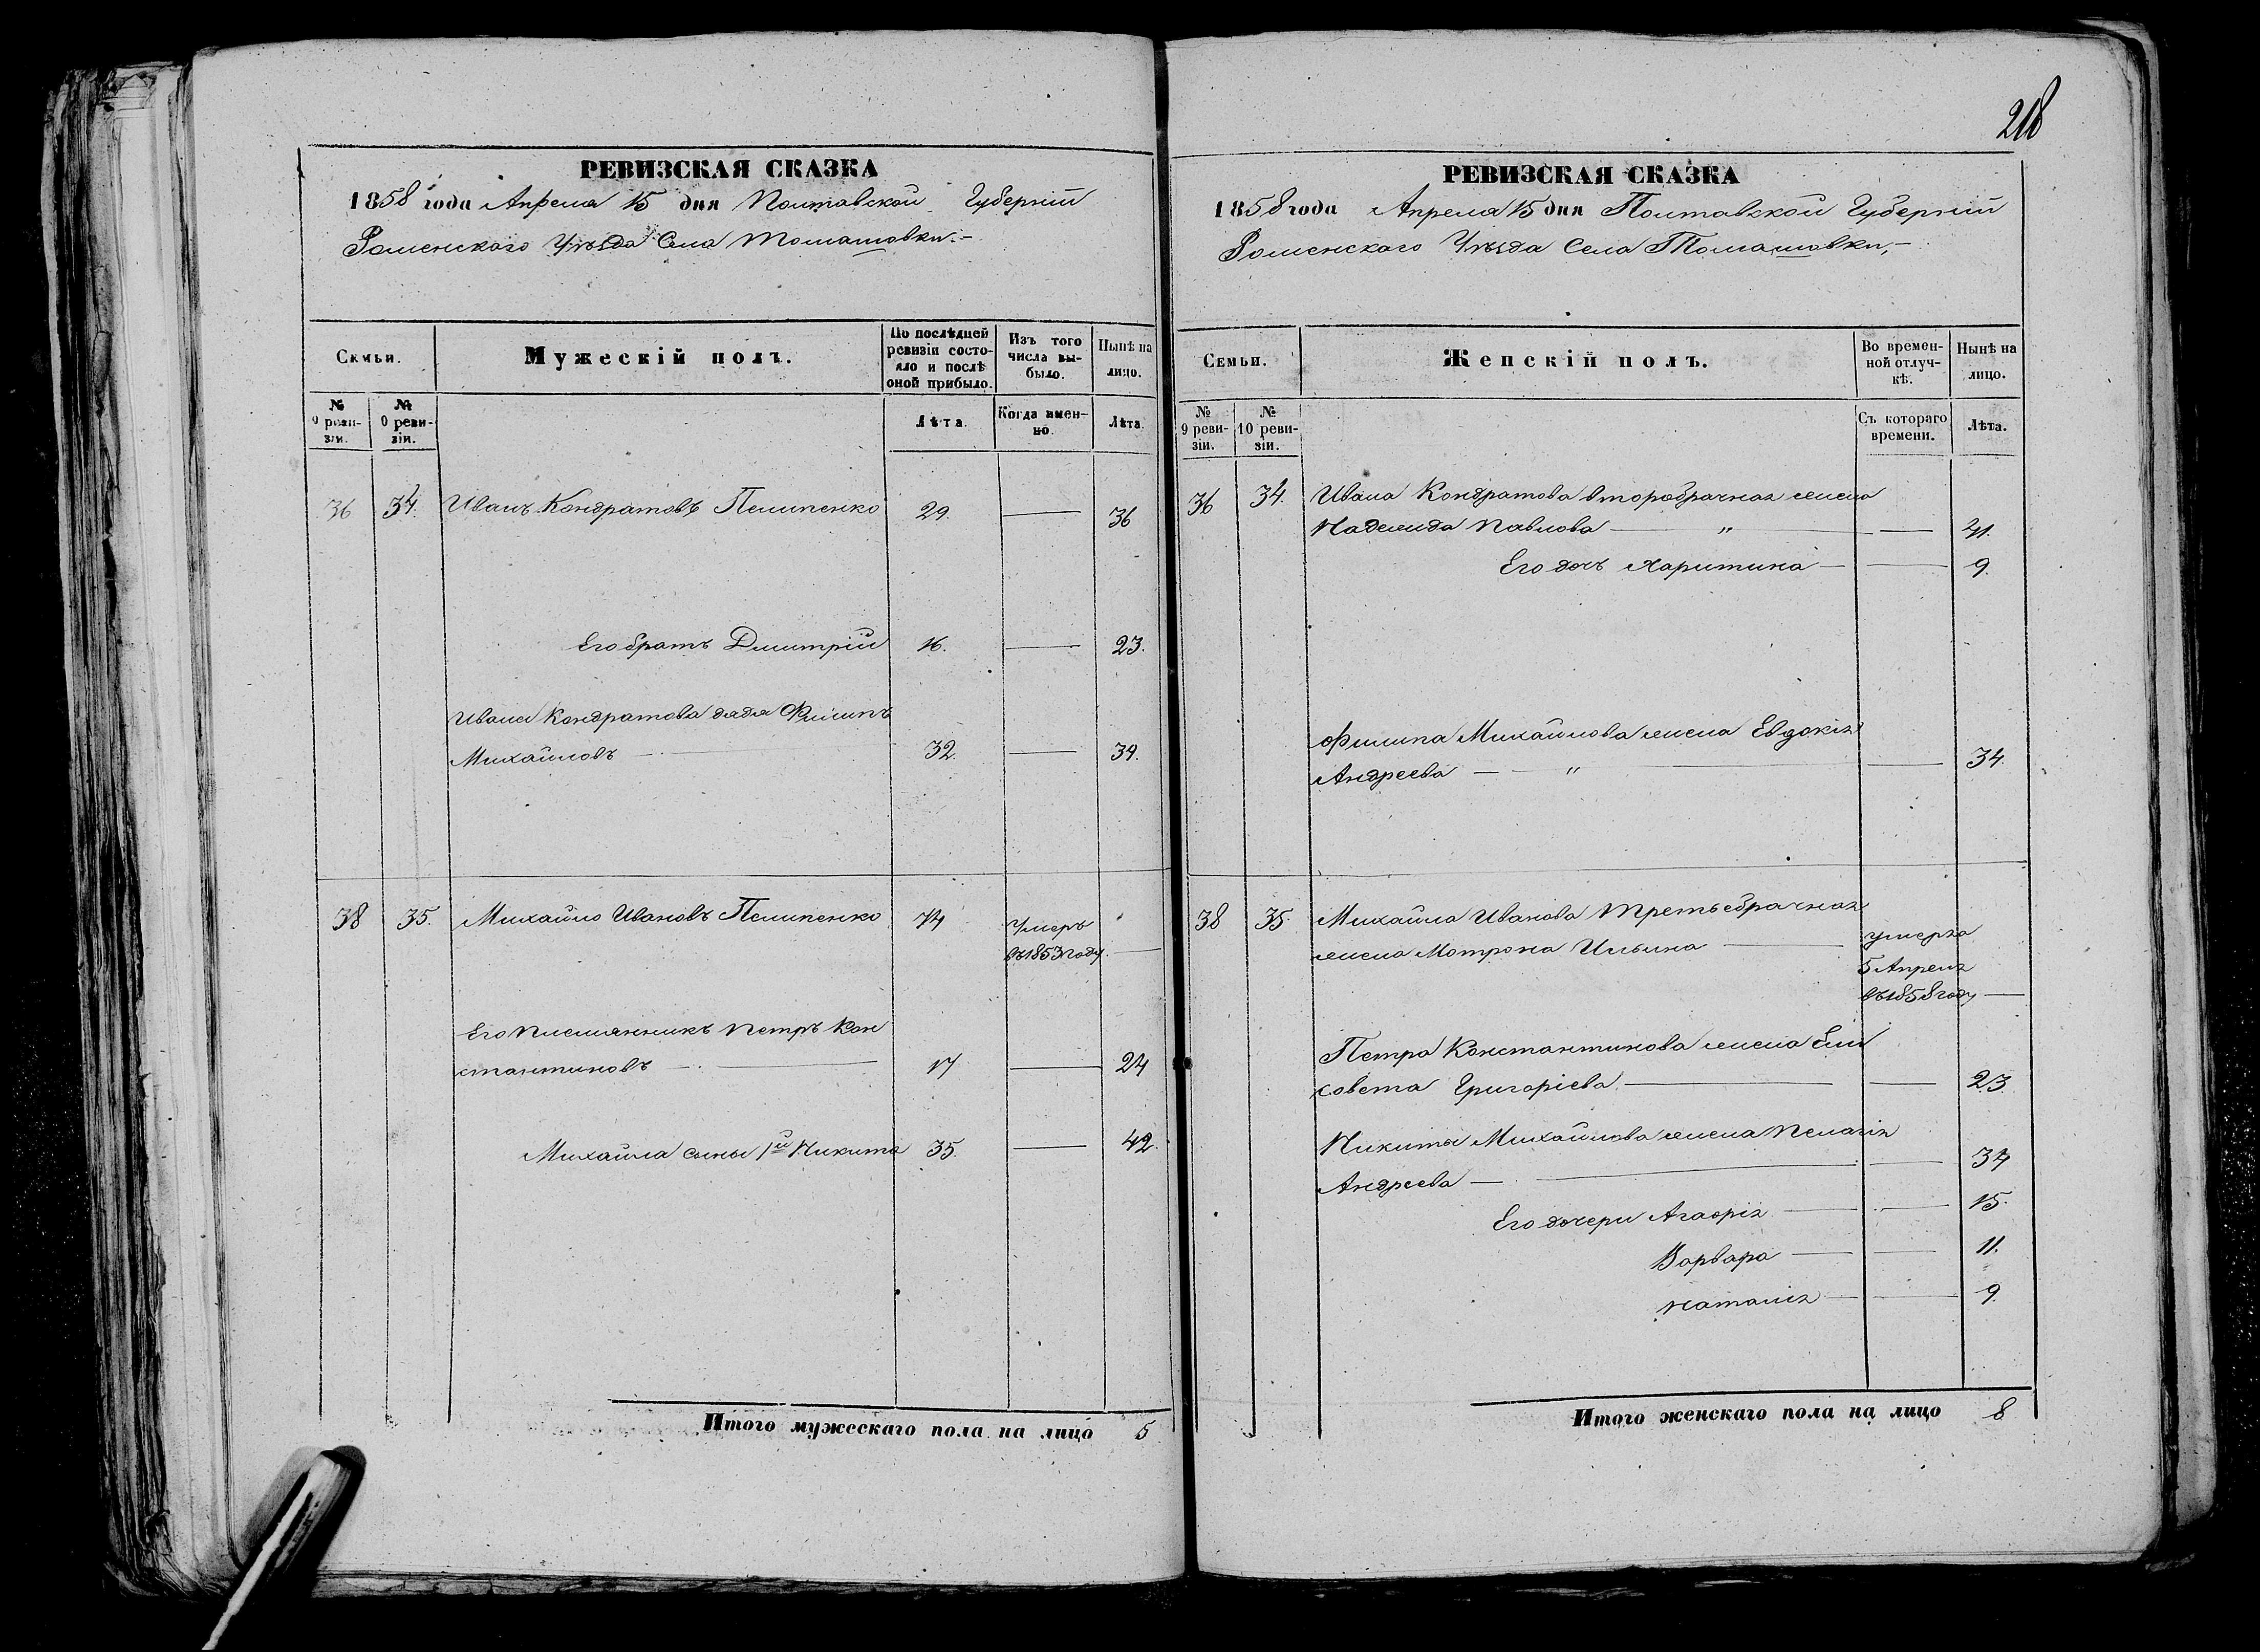 218
РЕВИЗСКАЯ СКАЗКА
1858 года Апреля 15 дня Полтавской Губерніи
Роменскаго Уѣзда Села Томашовки.-
Семьи.
Мужескій полъ.
По послѣдней ревизіи состояло и послѣ оной прибыло.
Изъ того числа выбыло.
Нынѣ на лицо.
№ 9 ревизіи.
№ 0 ревизіи.
Лѣта.
Когда именно.
Лѣта.
36 34. Иванъ Кондратовъ Пелипенко 29. — 36
Его братъ Дмитрій 16. — 23.
Ивана Кондратова дядя Филипъ
Михайловъ — 32. — 39.
38 35. Михайло Ивановъ Пелипенко 74 Умеръ
въ 1853 году. —
Его племянникъ Петръ Кон
стантиновъ — 17 — 24
Михайла сыны 1й Никита 35. — 42.
Итого мужескаго пола на лицо 5
РЕВИЗСКАЯ СКАЗКА
1858 года Апреля 15 дня Полтавской Губерніи
Роменскаго Уѣзда Села Томашовки,-
Семьи.
Женскій полъ.
Во временной отлучкѣ.
Нынѣ на лицо.
№ 9 ревизіи.
№ 10 ревизіи.
Съ котораго времени.
Лѣта.
36 34. Ивана Кондратова второбрачная жена
Надежида Павлова — " — 41.
Его дочь Харитина — 9.
Филипа Михайлова жена Евдокія
Андреева — " — 34.
38 35. Михайла Иванова третьебрачная
жена Мотрона Ильина — умерла
5 Апреля
въ 1858 году —
Петра Константинова жена Ели
совета Григоріева — 23.
Никиты Михайлова жена Пелагія
Андреева — 37
Его дочери Агафія — 15.
Варвара — 11.
Наталія — 9.
Итого женскаго пола на лицо 8